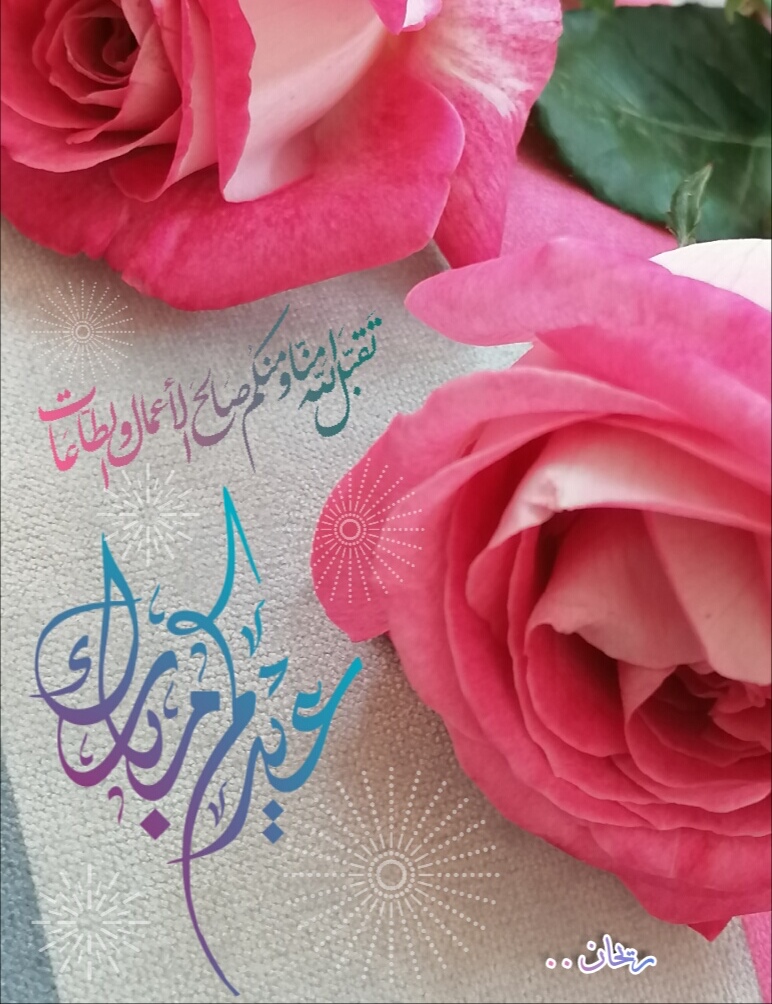 تقبّل الله منّا ومنكم صالح الأعمال والطاعات
عيدكم مبارك
ريحان..